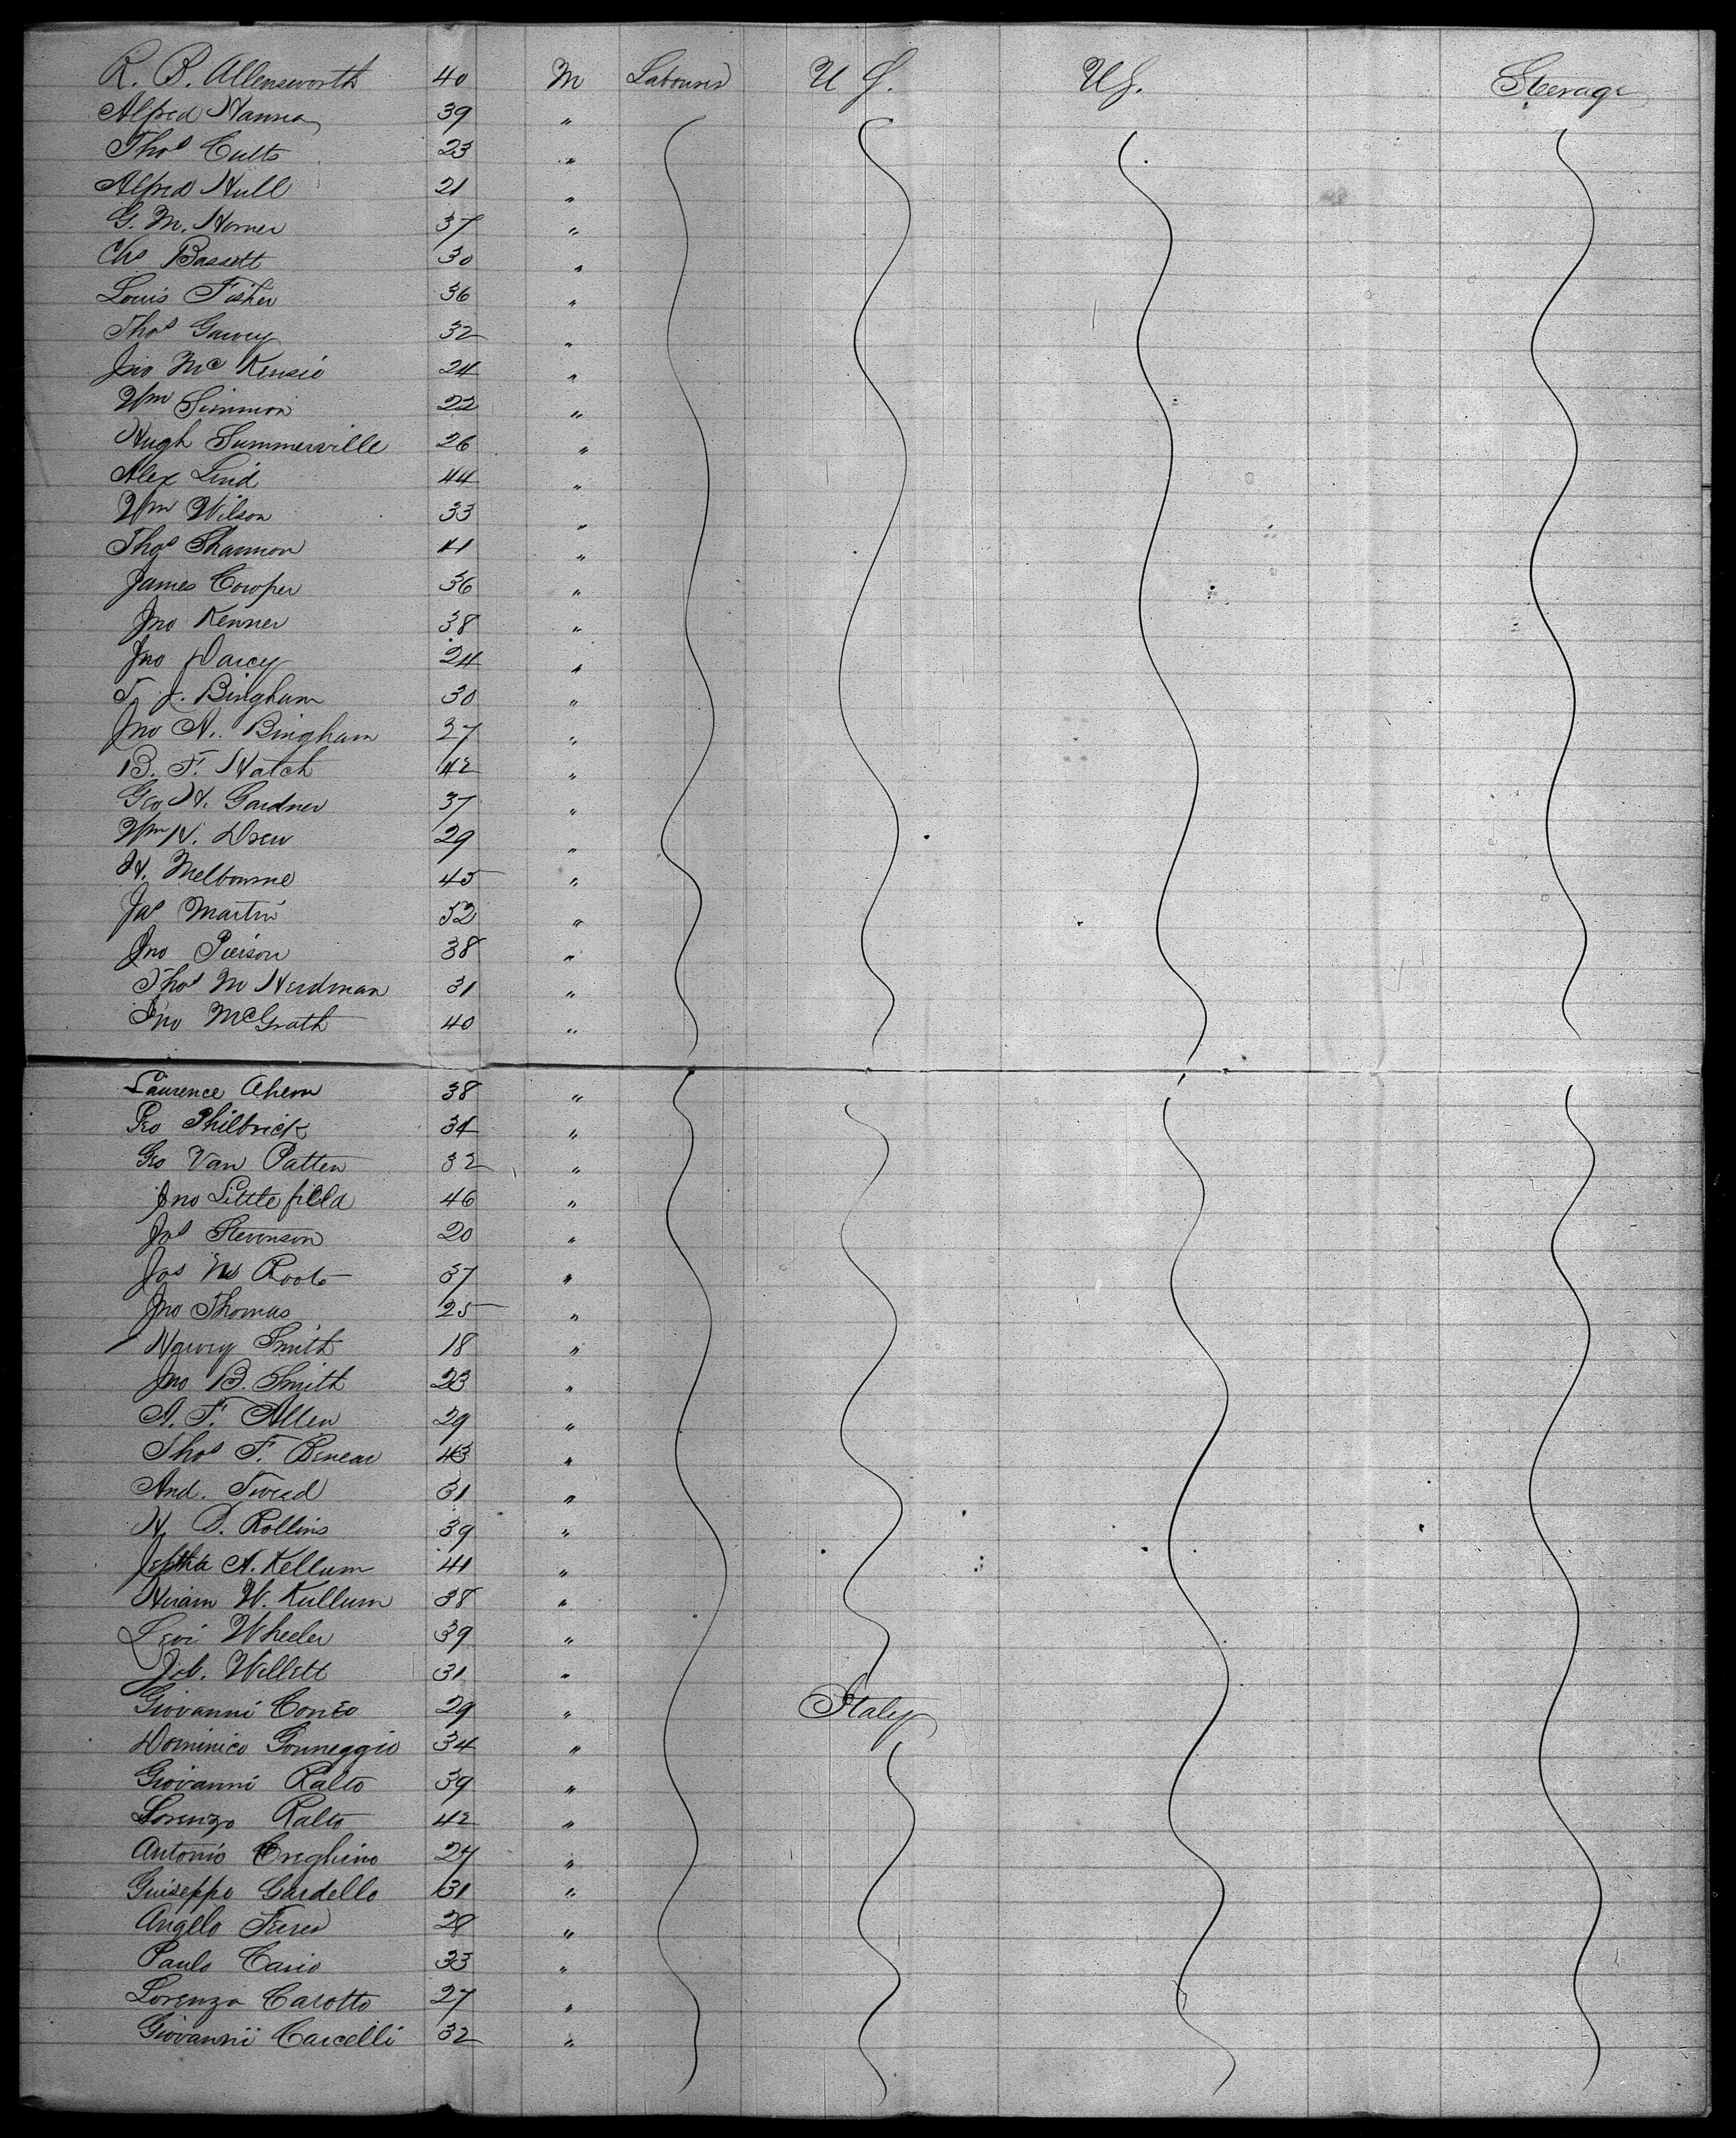 R. B. Allensworth 40 M Labourer U S. U S. Steerage
Alfred Hanna 39 "
Thos Cutts 23 "
Alfred Hull 21 "
G. M. Horner 37 "
Chs Bassett 30 "
Louis Fisher 36 "
Thos Garvey 32 "
Jno McKensie 24 "
Wm Simmon 22 "
Hugh Summerville 26 "
Alex Lind 44 "
Wm Wilson 33 "
Thos Shannon 41 "
James Cowper 36 "
Jno Kenner 38 "
Jno Darcy 24 "
T. J. Bingham 30 "
Jno A. Bingham 27 "
B. F. Hatch 42 "
Geo H. Gardner 37 "
Wm H. Drew 29 "
H. Melbourne 45 "
Jas Martin 52 "
Jno Pierson 38 "
Thos M Herdman 31 "
Jno McGrath 40 "
Laurence Ahern 38 "
Geo Philbrick 34 "
Geo Van Patten 32 "
Jno Littlefield 46 "
Jos Stevenson 20 "
Jos M Roots 37 "
Jno Thomas 25 "
Harvey Smith 18 "
Jno B. Smith 23 "
A. F. Allen 29 "
Thos F. 43 "
And. Tweed 31 "
H D. Rollins 39 "
Jeptha A. Kellum 41 "
Hiram W. Kullum 38 "
Levi Wheeler 39 "
Job. Willett 31 "
Giovanni Coneo 29 " Italy
Dominico Gonneggio 34 "
Giovanni Ralto 39 "
Lorenzo Ralto 42 "
Antonio Creghino 27 "
Guiseppo Gardello 31 "
Angelo 28 "
Paulo Casio 33 "
Lorenzo Casotto 27 "
Giovannii Carcelli 32 "